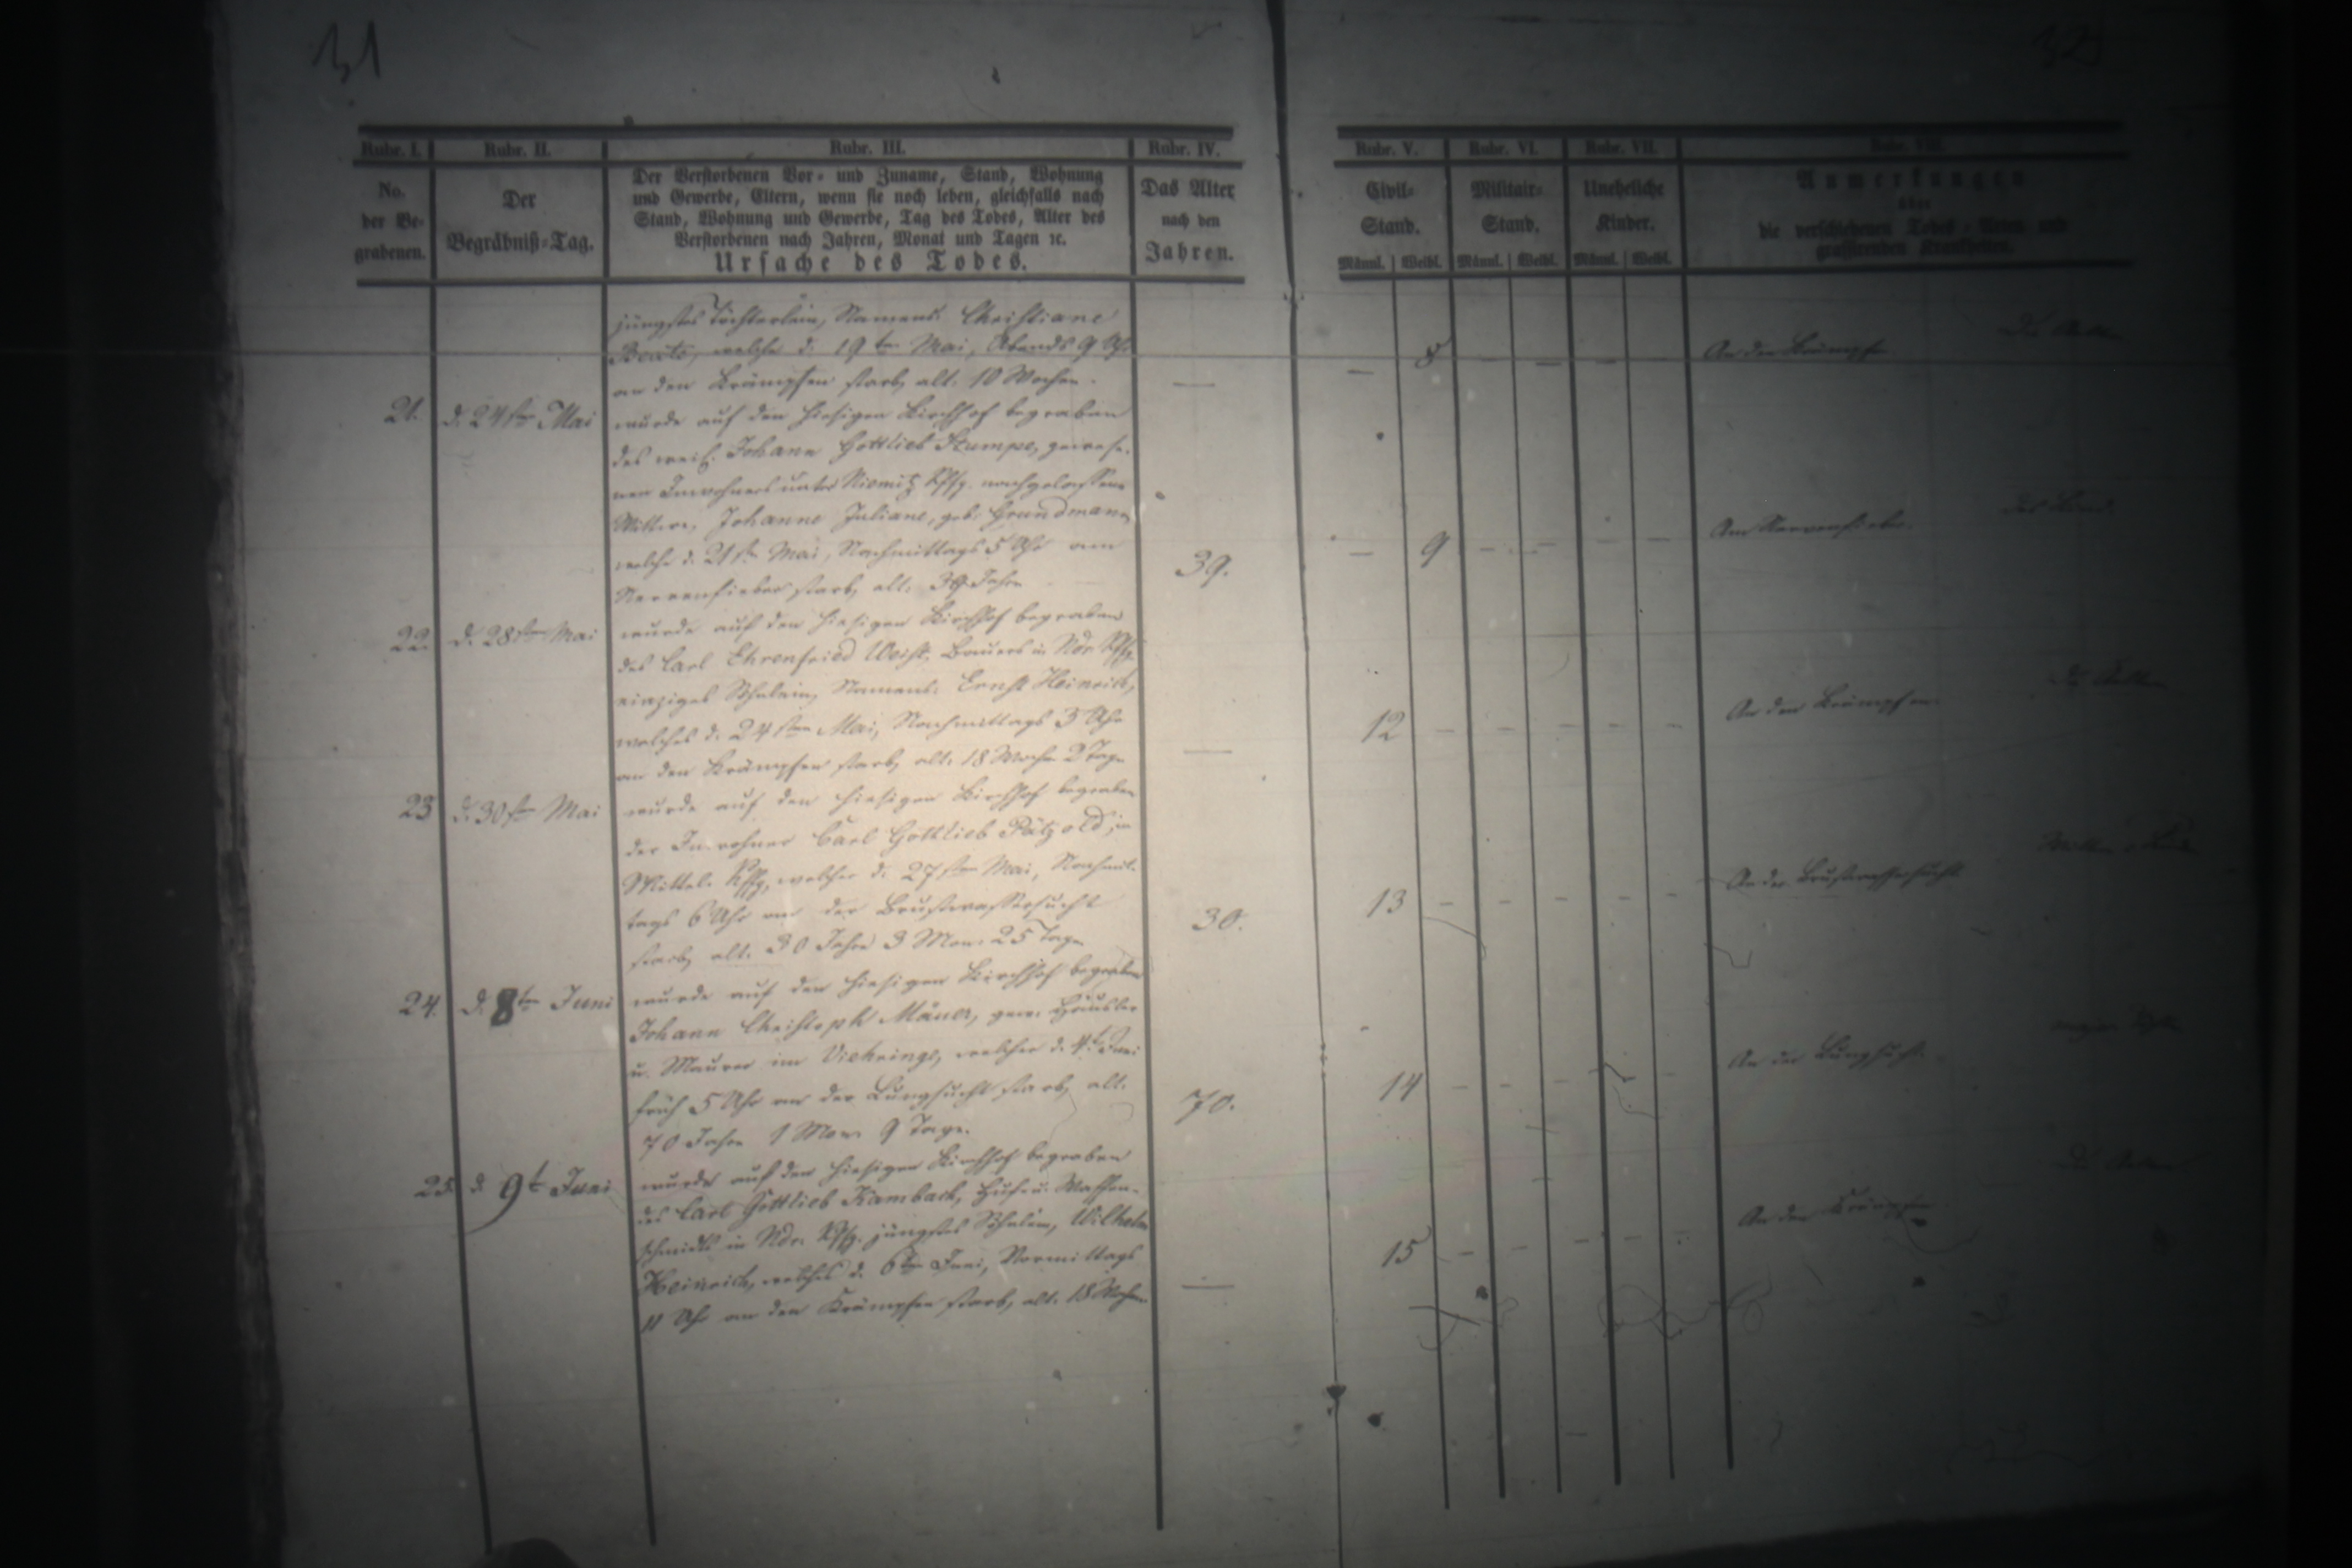 31
32
Rubr. I.
Rubr. II.
Rubr. III.
Rubr. IV.
Rubr. V.
Rubr. VI.
Rubr. VII.
Rubr. VIII.
No.
der Be-
grabenen.
Der
Begräbniß-Tag.
Der Verstorbenen Vor- und Zuname, Stand, Wohnung
und Gewerbe, Eltern, wenn sie noch leben, gleichfalls nach
Stand, Wohnung und Gewerbe, Tag des Todes, Alter des
Verstorbenen nach Jahren, Monat und Tagen ꝛc.
Ursache des Todes.
Das Alter
nach den
Jahren.
Civil-
Stand.
Männl. Weibl.
Militair-
Stand.
Männl. Weibl.
Uneheliche
Kinder.
Männl. Weibl.
Anmerkungen
über
die verschiedenen Todes-Arten und
grassirenden Krankheiten.
jüngstes Töchterlein, Namens: Christiane
Beate, welche d. 19ten Mai, Abends 9 Uhr
an den Krämpfen starb, alt. 10 Wochen.
— — 8 — — — An den Krämpfen
21. d. 24sten Mai
wurde auf den hiesigen Kirchhof begraben
des weil. Johann Gottlieb Stumpe, gewese-
nen Inwohners unter Niemitz nachgelassene
Wittwe, Johanne Juliane, geb. Grundmann,
welche d. 21st. Mai, Nachmittags 5 Uhr am
Nervenfieber starb, alt. 39 Jahre
39. — 9 — — — — Am Nervenfieber.
22. d. 28sten Mai
wurde auf den hiesigen Kirchhof begraben
des Carl Ehrenfried Weist, Bauers in Ndr.
einziges Söhnlein, Namens: Ernst Heinrich,
welches d. 24sten Mai, Nachmittags 3 Uhr
an den Krämpfen starb, alt. 18 Woch. 2 Tage
— 12 — — — — — An den Krämpfen
23 d. 30sten Mai
wurde auf den hiesigen Kirchhof begraben
der Inwohner Carl Gottlieb Pätzold, in
Mittel welcher d. 27sten Mai, Nachmit-
tags 6 Uhr an der Brustwassersucht
starb, alt. 30 Jahre 3 Mon. 25 Tage
30. 13 — — — — — An der Brustwassersucht
24. d. 8ten Juni
wurde auf den hiesigen Kirchhof begraben
Johann Christoph Mäuer, gew. Häusler
u. Maurer im Viehringe, welcher d. 4t. Juni
früh 5 Uhr an der Lungsucht starb, alt.
70 Jahre 1 Mon. 9 Tage.
70. 14 — — — — — An der Lungsucht.
25. d. 9t Juni
wurde auf den hiesigen Kirchhof begraben
des Carl Gottlieb Kambach, Huf- u. Waffen-
schmidts in Ndr. jüngstes Söhnlein, Wilhelm
Heinrich, welches d. 6ten Juni, Vormittags
11 Uhr an den Krämpfen starb, alt. 18 Wochen
— 15 — — — — — An den Krämpfen